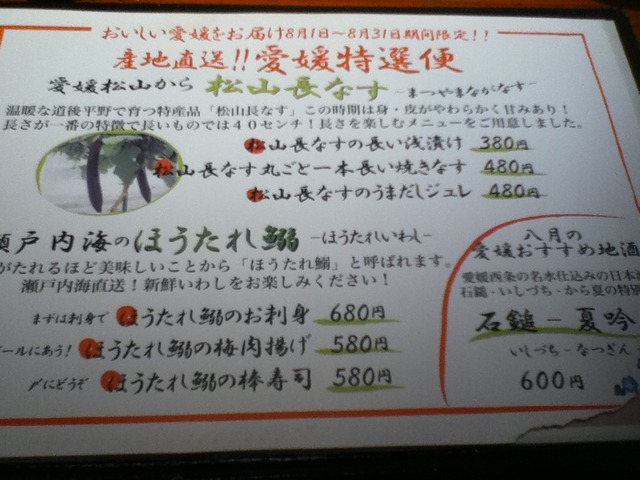 おいしい愛媛をお届け8月1日～8月31日期間限定！！
産地直送!!愛媛特選便
愛媛松山から 松山長なす -まつやまながなす-
温暖な道後平野で育つ特産品「松山長なす」この時期は身・皮がやわらかく甘みあり！
長さが一番の特徴で長いものでは４０センチ！長さを楽しむメニューをご用意しました。
松山長なすの長い浅漬け 380円
松山長なす丸ごと一本長い焼きなす 480円
松山長なすのうまだしジュレ 480円
瀬戸内海のほうたれ鰯 -ほうたれいわし-
がたれるほど美味しいことから「ほうたれ鰯」と呼ばれます。
瀬戸内海直送！新鮮いわしをお楽しみください！
まずは刺身で ほうたれ鰯のお刺身 680円
ールにあう！ ほうたれ鰯の梅肉揚げ 580円
〆にどうぞ ほうたれ鰯の棒寿司 580円
八月の
愛媛おすすめ地酒
愛媛西条の名水仕込みの日本
石鎚-いしづち-から夏の特別
石鎚-夏吟
いしづち-なつぎん
600円